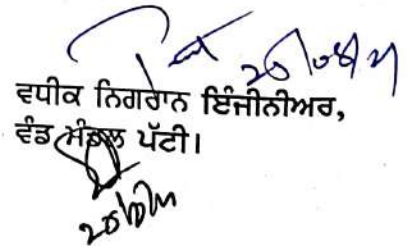 20/08/21
ਵਧੀਕ ਨਿਗਰਾਨ ਇੰਜੀਨੀਅਰ,
ਵੰਡ ਮੰਡਲ ਪੱਟੀ।